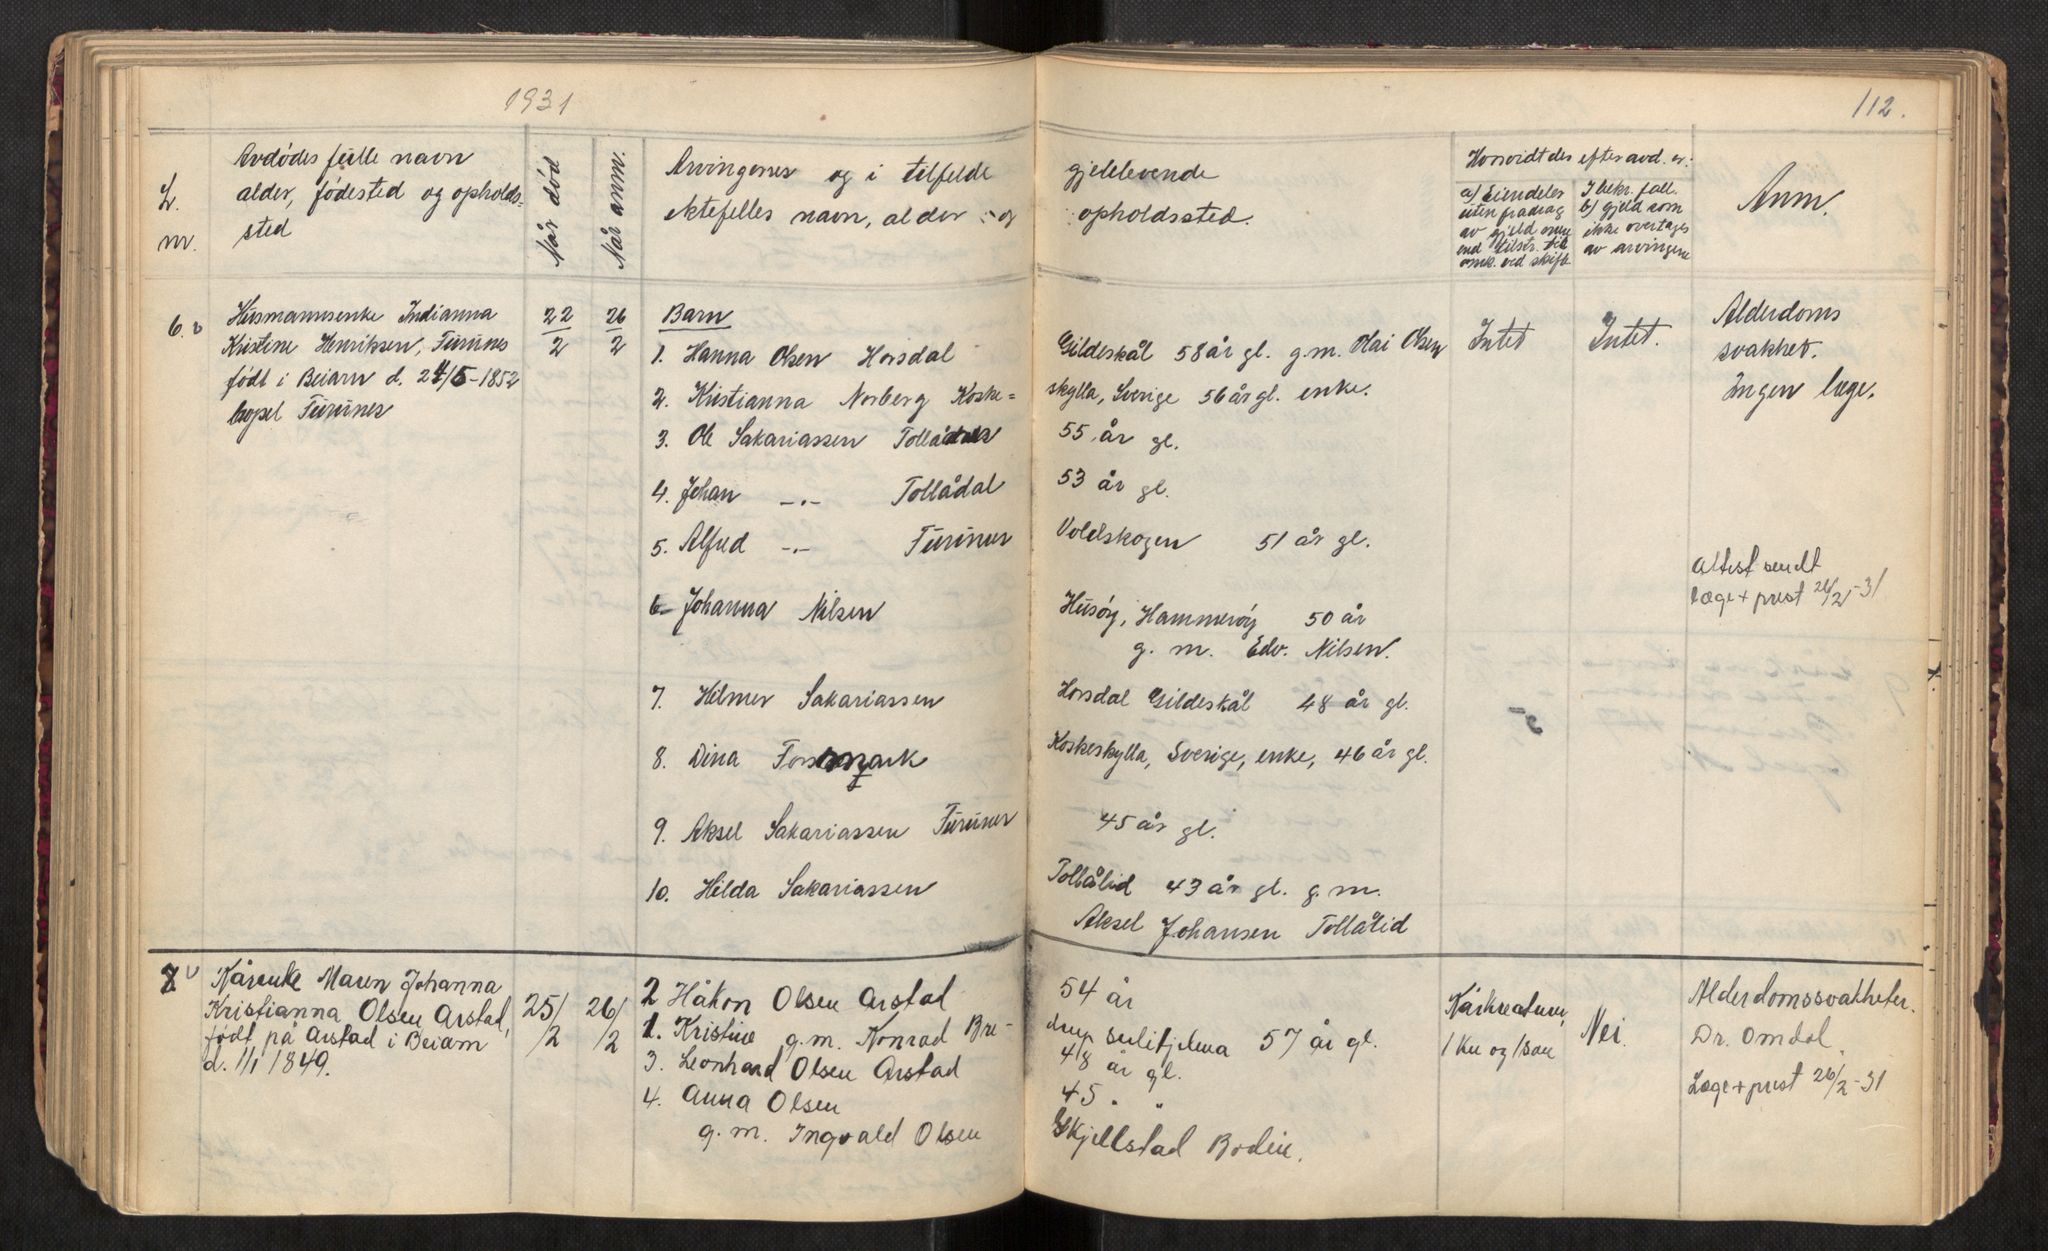 1931
112.
L. nr.
Avdødes fulle navn
alder, fødested og opholds-
sted
Når død
Når anm.
Arvingenes og i tilfelde gjenlevende
ektefelles navn, alder og opholdssted.
Hvorvidt des efter avd. er:
a) Eiendeler
uten fradrag
av gjeld
I bekr. fall.
b) gjeld som
ikke overtages
av arvingene
Anm.
6.
Husmannsenke Indianna
Kristine Henriksen, Furunes
født i Beiarn d. 24/5-1852
bopel Furunes
22/2
26/2
Barn
1. Hanna Olsen Horsdal Gildeskål 58 år gl. g.m. Olai Olsen
2. Kristianna Norberg Koske=skylla, Sverige 56 år gl. enke.
3. Ole Sakariassen 55 år gl.
4. Johan -"- Tollådal 53 år gl.
5. Alfred -"- Furunes Voldskogen 51 år gl.
6. Johanna Nilsen Husøy, Hammerøy 50 år
g. m. Edv. Nilsen.
7. Hilmer Sakariassen Horsdal Gildeskål 48 år gl.
8. Dina Koskeskylla, Sverige, enke, 46 år gl.
9. Aksel Sakariassen Furunes 45 år gl.
10. Hilda Sakariassen Tollålid 43 år gl. g. m.
Aksel Johansen Tollålid
Intet
Intet.
Alderdoms
svakhet.
Ingen læge.
Attest sendt
læge + prest 26/2-31
7.
Kårenke Maren Johanna
Kristianna Olsen Arstad,
født på Arstad i Beiarn
d. 1/1 1849.
25/2
26/2
2 Håkon Olsen Arstad 54 år
1. Kristine g.m. Konrad Bre- Sulitjelma 57 år gl.
3. Leonhard Olsen Arstad 48 år gl.
4. Anna Olsen 45 " "
g. m. Ingvald Olsen Skjellstad Bodin.
Kårkreaturer,
1 ku og 1 sau
Nei.
Alderdomssvakheter.
Dr. Omdal
Læge + prest 26/2-31